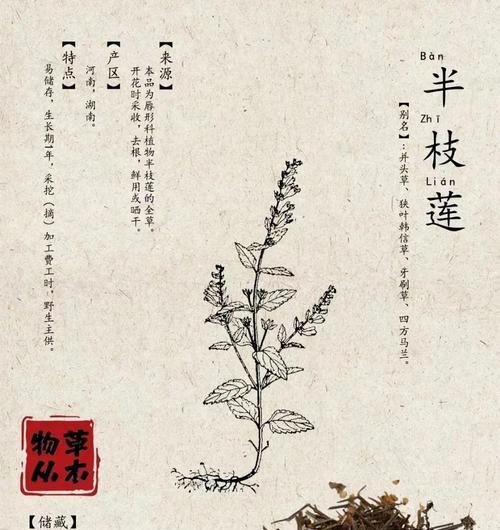 Bàn
半
Zhī
枝
Lián
莲
【别名】：并头草、狭叶韩信草、牙刷草、四方马兰。
【来源】
本品为唇形科植物半枝莲的全草。
开花时采收，去根，鲜用或晒干。
【产区】
河南，湖南。
【特点】
易储存，生长期1年，采挖（摘）加工费工时，野生主供。
草木
物从
【储藏】